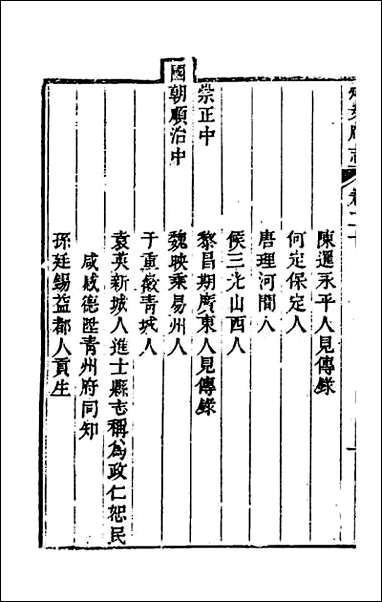 府志
卷二十
陳暹永平人見傳錄
何定保定人
唐理河間人
侯三光山西人
崇正中　黎昌期廣東人見傳錄
國朝順治中　魏映乘易州人
于重徽青城人
袁英新城人進士縣志稱爲政仁恕民
咸感德陞青州府同知
孫廷錫益都人貢生